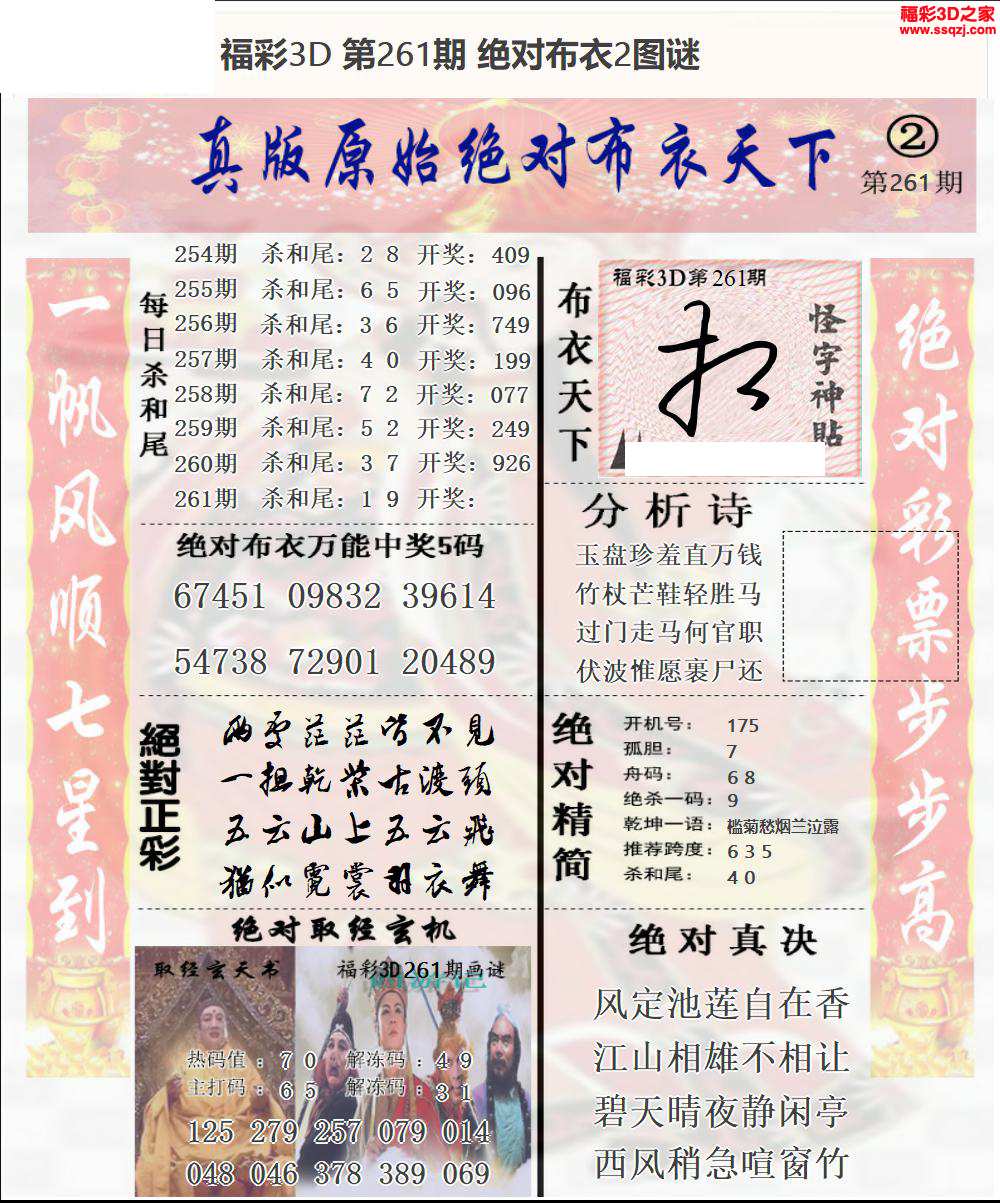 福彩3D之家
www.ssqzj.com
福彩3D 第261期 绝对布衣2图谜
真版原始绝对布衣天下
②
第261期
一帆风顺七星到
每日杀和尾
254期 杀和尾：2 8 开奖：409
255期 杀和尾：6 5 开奖：096
256期 杀和尾：3 6 开奖：749
257期 杀和尾：4 0 开奖：199
258期 杀和尾：7 2 开奖：077
259期 杀和尾：5 2 开奖：249
260期 杀和尾：3 7 开奖：926
261期 杀和尾：1 9 开奖：
绝对布衣万能中奖5码
67451 09832 39614
54738 72901 20489
絕對正彩
两雪茫茫皆不见
一担乾柴古渡头
五云山上五云飞
犹似霓裳羽衣舞
绝对取经玄机
取经玄天书
福彩3D261期画谜
热码值：7 0 解冻码：4 9
主打码：6 5 解冻码：3 1
125 279 257 079 014
048 046 378 389 069
布衣天下
福彩3D第261期
怪字神貼
分析诗
玉盘珍羞直万钱
竹杖芒鞋轻胜马
过门走马何官职
伏波惟愿裹尸还
绝对精简
开机号： 175
孤胆： 7
舟码： 6 8
绝杀一码： 9
乾坤一语： 槛菊愁烟兰泣露
推荐跨度： 6 3 5
杀和尾： 4 0
绝对真决
风定池莲自在香
江山相雄不相让
碧天晴夜静闲亭
西风稍急喧窗竹
绝对彩票步步高